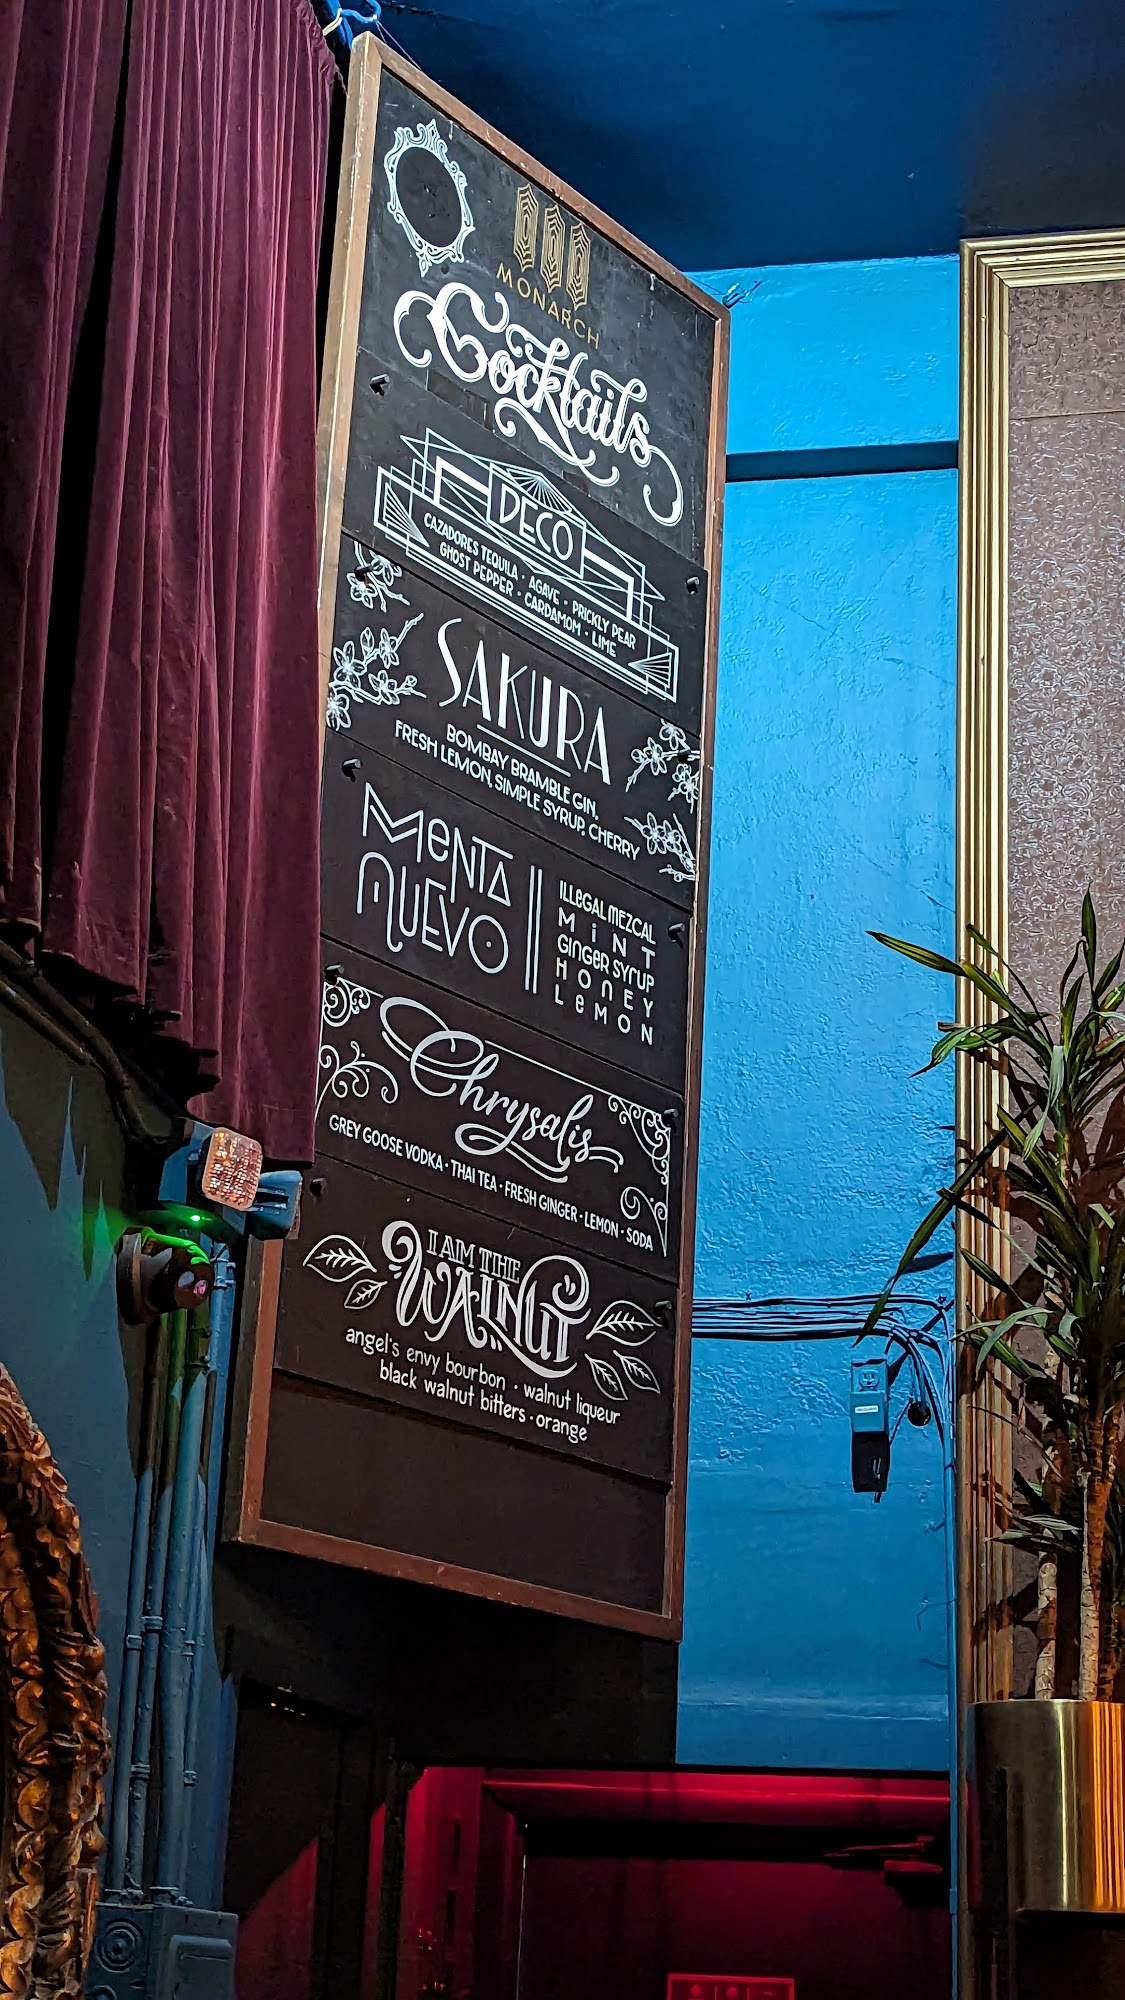 MONARCH
Cocktails
DECO
CAZADORES TEQUILA · AGAVE · PRICKLY PEAR
GHOST PEPPER · CARDAMOM · LIME
SAKURA
BOMBAY BRAMBLE GIN,
FRESH LEMON, SIMPLE SYRUP, CHERRY
MeNTA
NUEVO
ILLEGAL MEZCAL
MiNT
GinGeR SYrUP
HOnEY
LeMON
Chrysalis
GREY GOOSE VODKA · THAI TEA · FRESH GINGER · LEMON · SODA
I AM THE
WALNUT
angel's envy bourbon · walnut liqueur
black walnut bitters · orange